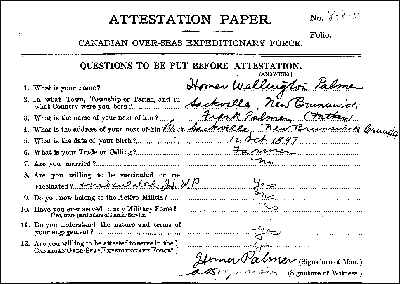 ATTESTATION PAPER. No.
Folio.
CANADIAN OVER-SEAS EXPEDITIONARY FORCE.
QUESTIONS TO BE PUT BEFORE ATTESTATION.
(ANSWERS)
1. What is your name? Homer Wallington Palmer
2. In what Town, Township or Parish, and in what Country were you born? Sackville, New Brunswick
3. What is the name of your next of kin? Frank Palmer (Father)
4. What is the address of your next of kin? Sackville, New Brunswick Canada
5. What is the date of your birth? Oct 1897
6. What is your Trade or Calling? Farmer
7. Are you married? No
8. Are you willing to be vaccinated or re-
vaccinated? Yes
9. Do you now belong to the Active Militia?
10. Have you ever served in any Military Force?
11. Do you understand the nature and terms of
your engagement? Yes
12. Are you willing to be attested to serve in the
CANADIAN OVER-SEAS EXPEDITIONARY FORCE?
Homer Palmer (Signature of Man).
(Signature of Witness).